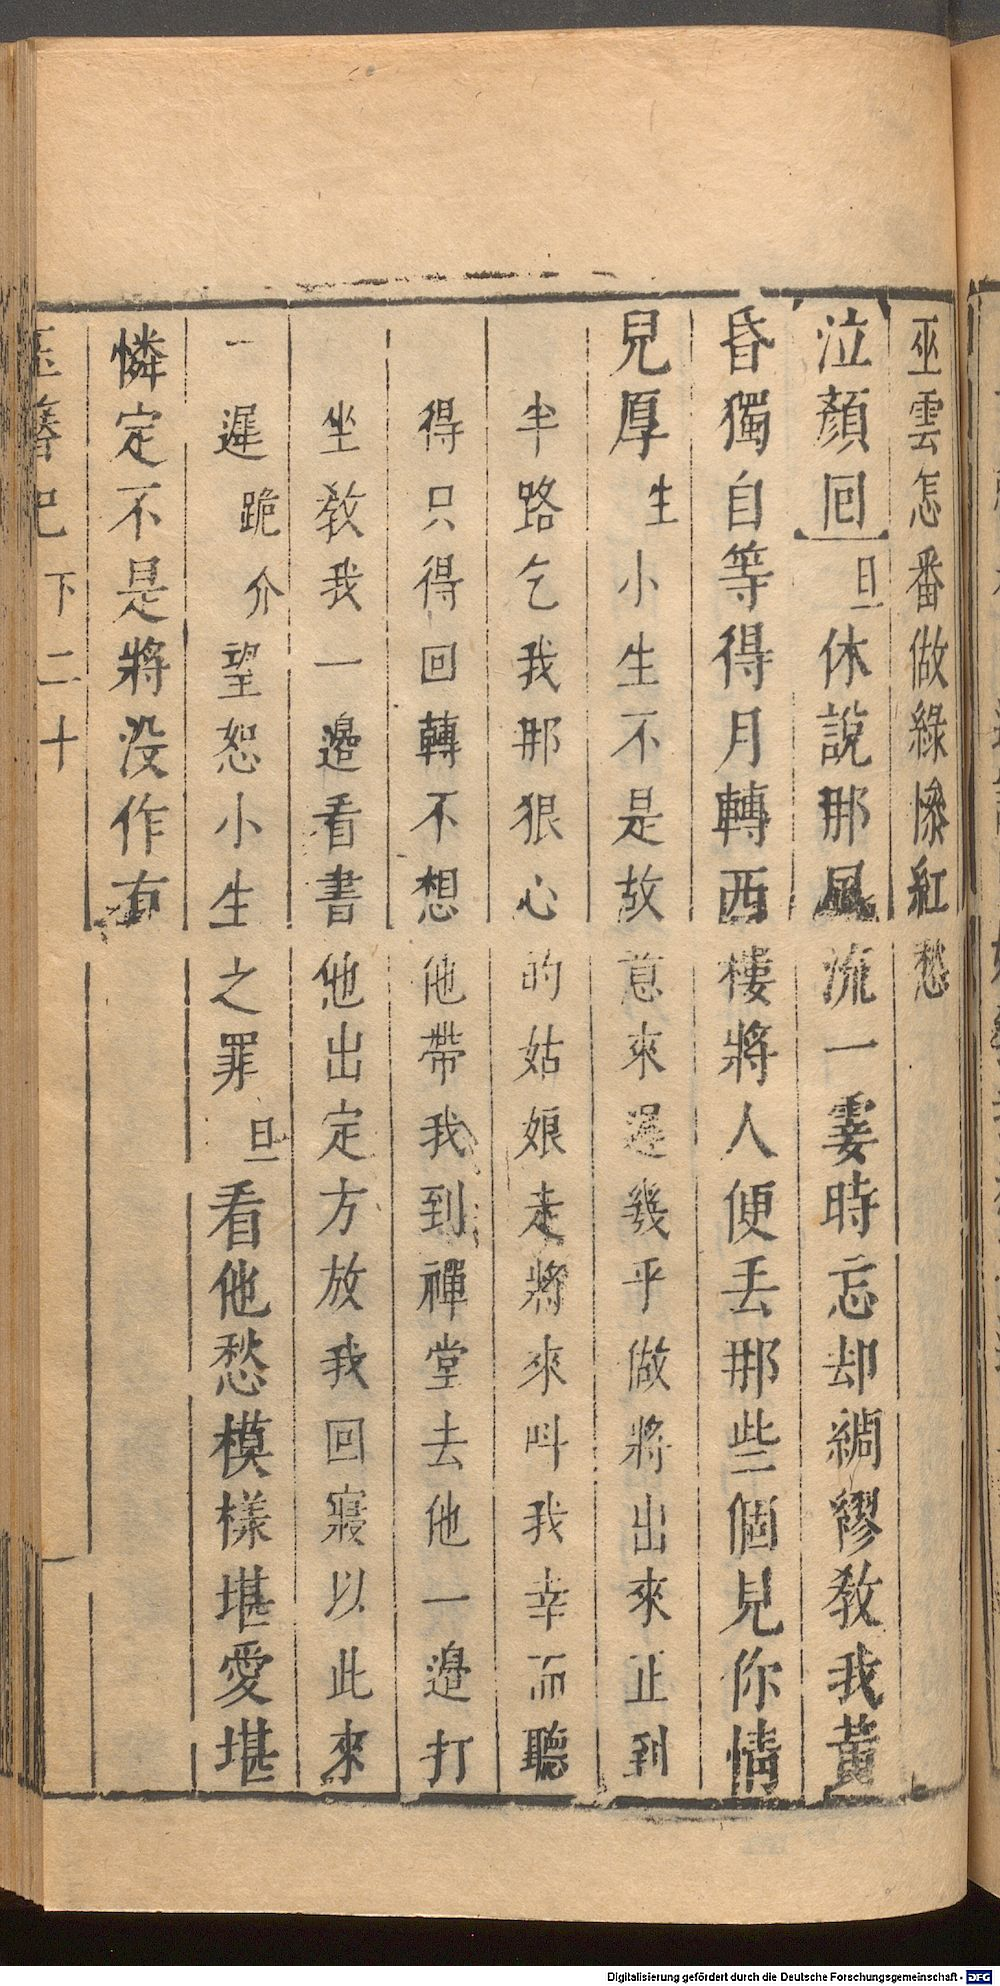 巫雲怎番做綠慘紅愁
泣顏回旦休說那風流一霎時忘却綢繆教我黃
昏獨自等得月轉西樓將人便丟那些個見你情
兒厚生小生不是故意來遲幾乎做將出來正到
半路乞我那狠心的姑娘走將來叫我幸而聽
得只得回轉不想他帶我到禪堂去他一邉打
坐教我一邉看書他出定方放我回寢以此來
一遲跪介望恕小生之罪旦看他愁模樣堪愛堪
憐定不是將没作有
玉簪記下二十
Digitalisierung gefördert durch die Deutsche Forschungsgemeinschaft - DFG